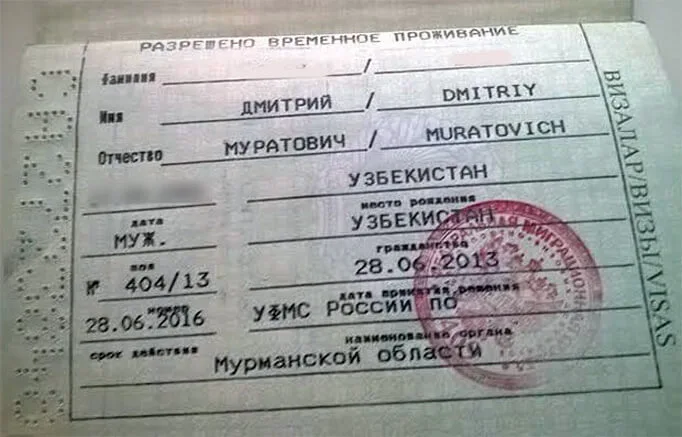 РАЗРЕШЕНО ВРЕМЕННОЕ ПРОЖИВАНИЕ
фамилия /
Имя ДМИТРИЙ / DMITRIY
Отчество МУРАТОВИЧ / MURATOVICH
УЗБЕКИСТАН
дата место рождения
МУЖ. УЗБЕКИСТАН
пол гражданство
№ 404/13 28.06.2013
номер дата принятия решения
28.06.2016 УФМС РОССИИ ПО
срок действия наименование органа
Мурманской области
ВИЗАЛАР/ВИЗЫ/VISAS
МИГРАЦИОННАЯ